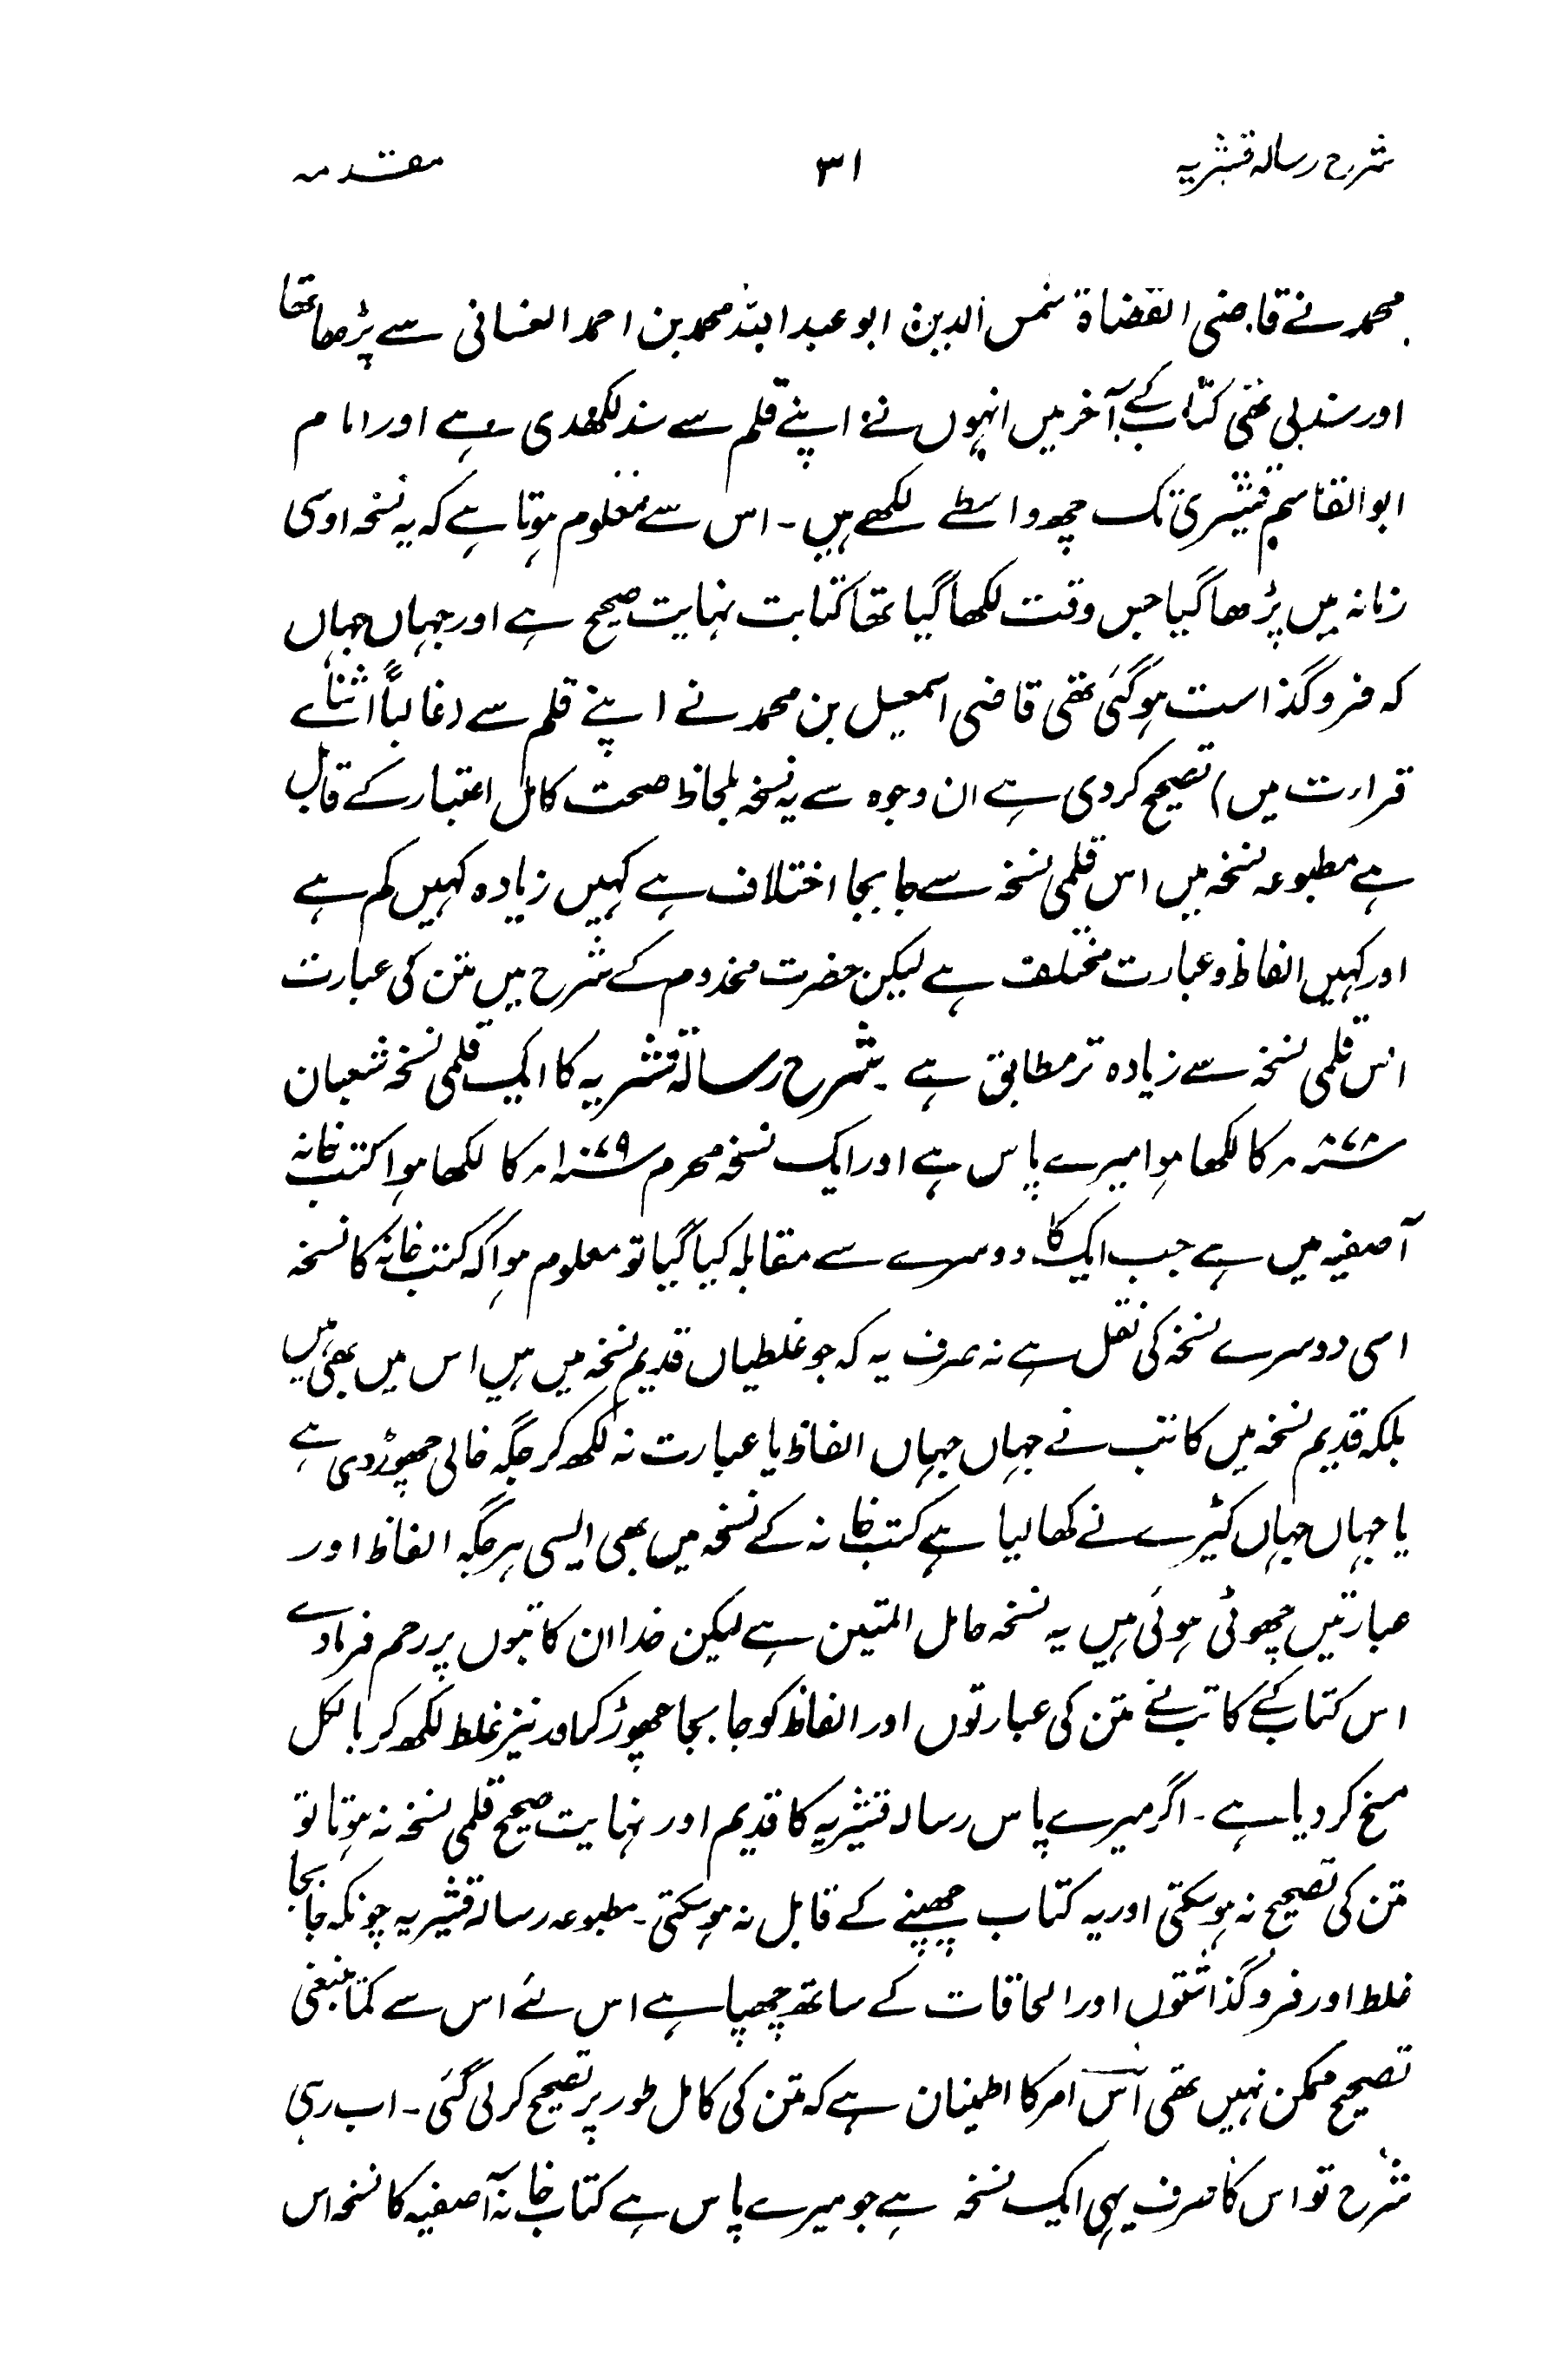 شرح رسالہ قشیریہ ۳۱ مقدمہ
محمد نے قاضی القضاۃ شمس الدین ابو عبداللہ محمد بن احمد الغسانی سے پڑھا تھا
اور سند لی تھی کتاب کے آخر میں انہوں نے اپنے قلم سے سند لکھدی ہے اور امام
ابوالقاسم قشیری تک چھ واسطے لکھے ہیں۔ اس سے معلوم ہوتا ہے کہ یہ نسخہ اوسی
زمانہ میں پڑھا گیا جس وقت لکھا گیا تھا کتابت نہایت صحیح ہے اور جہاں جہاں
کہ فروگذاست ہوگئی تھی قاضی اسمعیل بن محمد نے اپنے قلم سے (غالباً اثنائے
قرارت میں) تصحیح کردی ہے ان وجوہ سے یہ نسخہ بلحاظ صحت کامل اعتبار کے قابل
ہے مطبوعہ نسخہ میں اس قلمی نسخہ سے جابجا اختلاف ہے کہیں زیادہ کہیں کم ہے
اور کہیں الفاظ و عبارت مختلف ہے لیکن حضرت مخدوم کے شرح میں متن کی عبارت
اس قلمی نسخہ سے زیادہ تر مطابق ہے ۔ شرح رسالہ قشریہ کا ایک قلمی نسخہ شعبان
کا لکھا ہوا میرے پاس ہے اور ایک نسخہ محرم ۱۰۷۹ھ کا لکھا ہوا کتب خانہ
آصفیہ میں ہے جب ایک کا دوسرے سے مقابلہ کیا گیا تو معلوم ہوا کہ کتب خانہ کا نسخہ
اسی دوسرے نسخہ کی نقل ہے نہ صرف یہ کہ جو غلطیاں قدیم نسخہ میں ہیں اس میں بھی ہیں
بلکہ قدیم نسخہ میں کاتب نے جہاں جہاں الفاظ یا عبارت نہ لکھ کر جگہ خالی چھوڑ دی ہے
یا جہاں جہاں کیڑے نے کھا لیا ہے کتب خانہ کے نسخہ میں بھی ایسی ہر جگہ الفاظ اور
عبارتیں چھوٹی ہوئی ہیں یہ نسخہ حامل المتین ہے لیکن خدا ان کاتبوں پر رحم فرمادے
اس کتاب کے کاتب نے متن کی عبارتوں اور الفاظ کو جابجا چھوڑ کر اور نیز غلط لکھ کر بالکل
مسخ کر دیا ہے۔ اگر میرے پاس رسالہ قشیریہ کا قدیم اور نہایت صحیح قلمی نسخہ نہ ہوتا تو
متن کی تصحیح نہ ہوسکتی اور یہ کتاب چھپنے کے قابل نہ ہوسکتی۔ مطبوعہ رسالہ قشیریہ چونکہ جابجا
غلط اور فروگذاشتوں اور الحاقات کے ساتھ چھپا ہے اس لئے اس سے کماینبغی
تصحیح ممکن نہیں تھی اس امر کا اطمینان ہے کہ متن کی کامل طور پر تصحیح کرلی گئی۔ اب رہی
شرح تو اس کا صرف یہی ایک نسخہ ہے جو میرے پاس ہے کتاب خانہ آصفیہ کا نسخہ اس